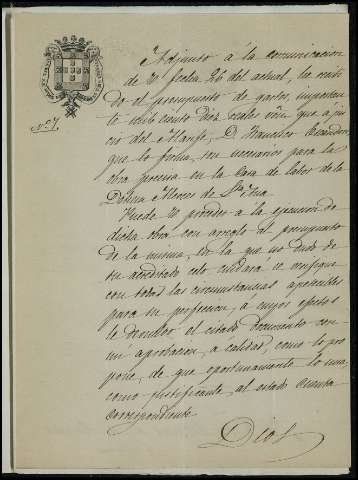 Nº 7.
Adjunto á la comunicacion
de V fecha 26 del actual, he recibi
do el presupuesto de gastos, importan
te mil ciento diez reales von que a jui
cio del Alarife, D. Francisco
que lo firma, son necesarios para la
obra precisa en la Casa de labor de la
Dehesa
Puede V proceder á la ejecucion de
dicha obra con arreglo al presupuesto
de la misma, en la que no dudo de
su acreditado celo cuidará se verifique
con todas las circunstancias apetecibles
para su perfeccion, a cuyos efectos
le devuelvo el citado documento con
mi aprobacion, á calidad, como lo pro
pone, de que oportunamente lo una
como justificante al citado cuenta
correspondiente
Dios